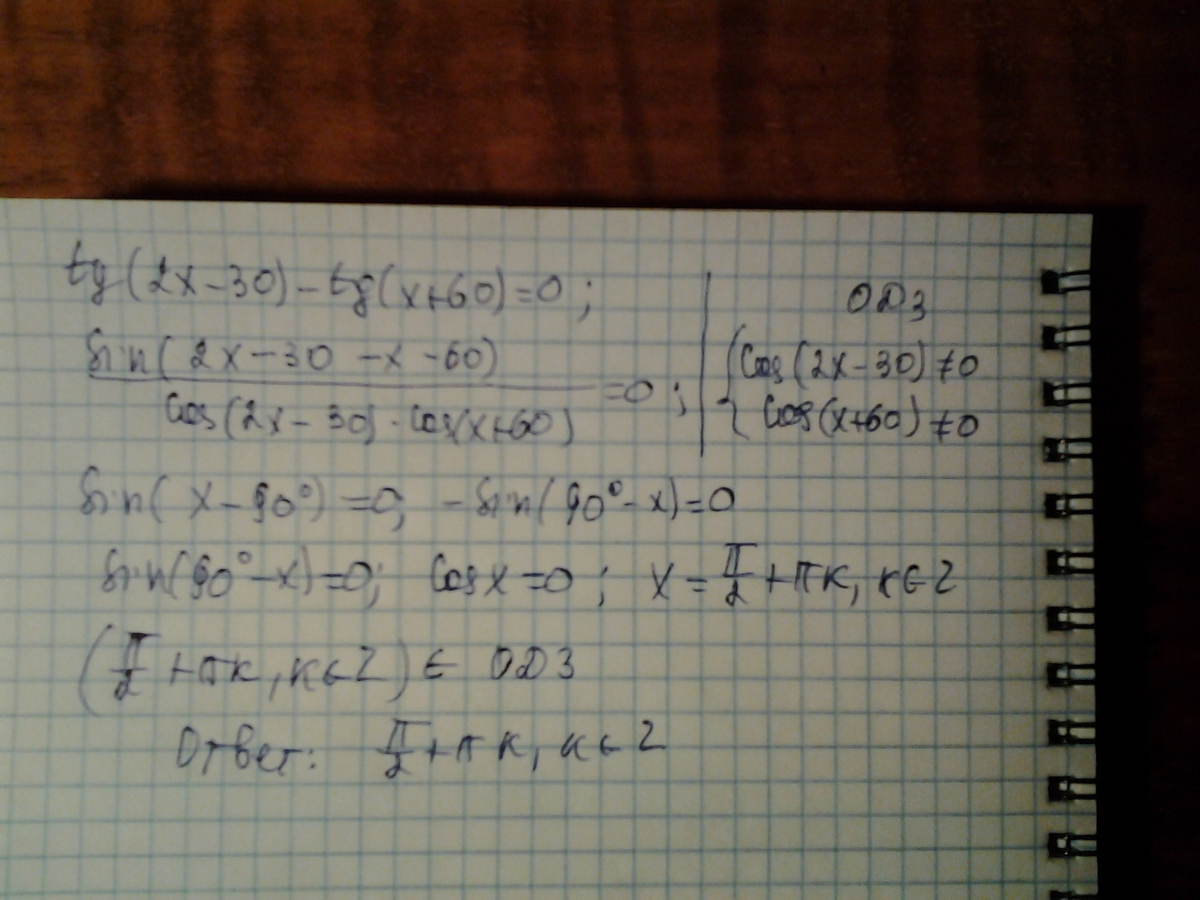 tg(2x-30)-tg(x+60)=0;
sin(2x-30-x-60)
cos(2x-30)·cos(x+60)
=0;
ОДЗ
{cos(2x-30)≠0
cos(x+60)≠0
sin(x-90°)=0; -sin(90°-x)=0
sin(90°-x)=0; cosx=0; x=π/2+πк, к∈Z
(π/2+πк, к∈Z)∈ ОДЗ
Ответ: π/2+πк, к∈Z